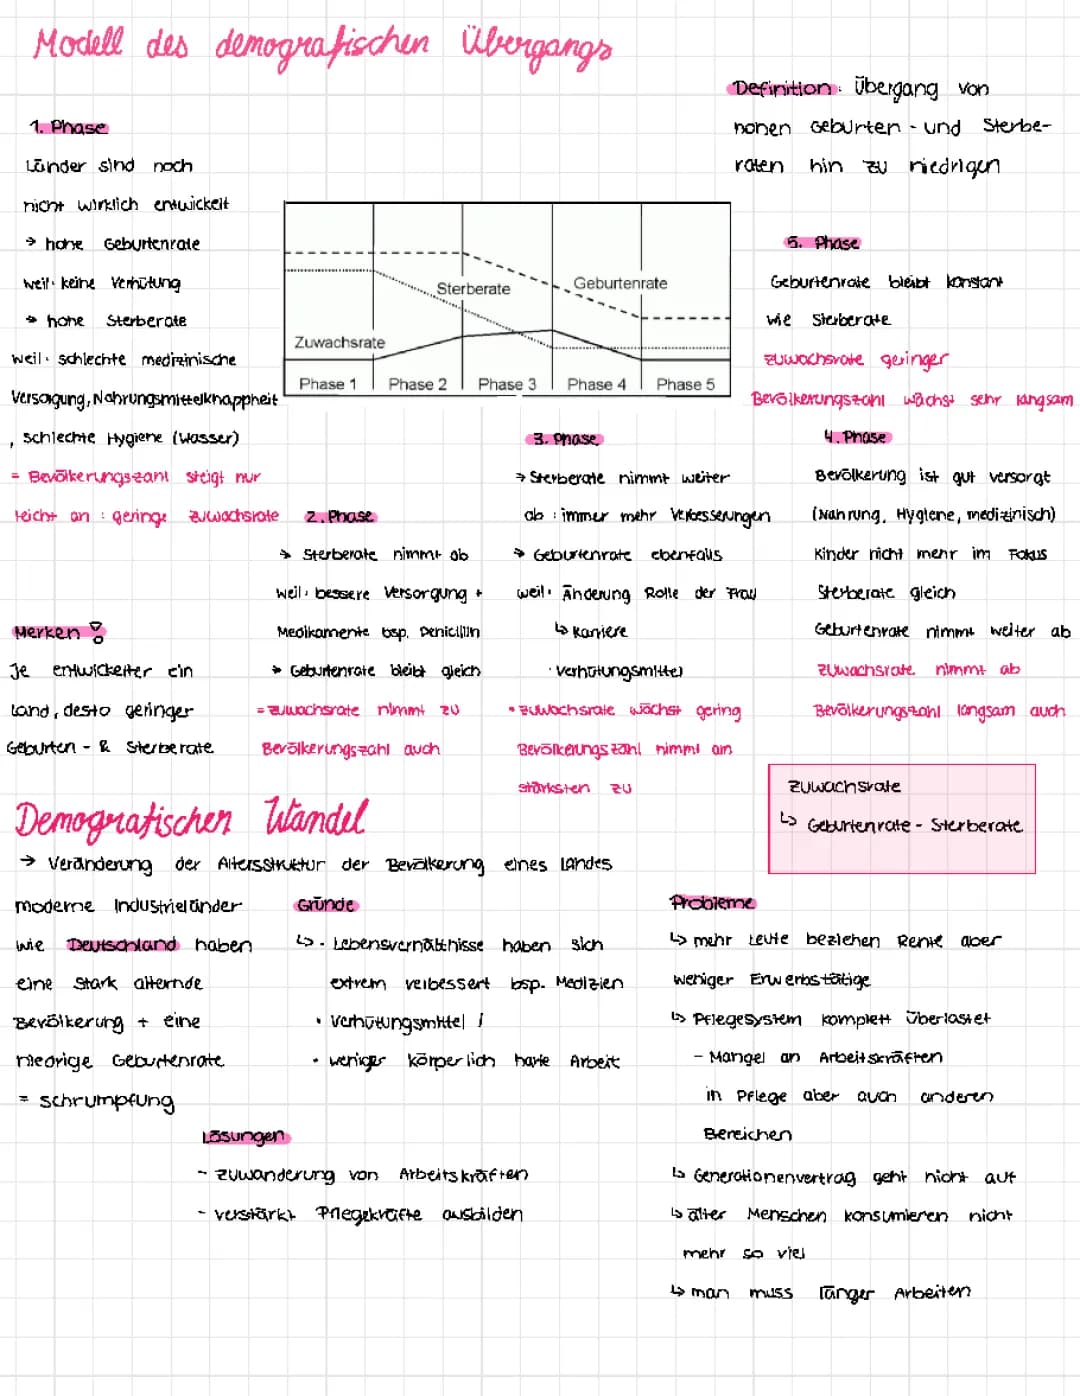 Modell des demografischen Übergangs
Definition: Übergang von
hohen Geburten - und Sterbe-
raten hin zu niedrigen
1. Phase
Länder sind noch
nicht wirklich entwickelt
→ hohe Geburtenrate
weil: keine Verhütung
→ hohe Sterberate
weil: schlechte medizinische
Versorgung, Nahrungsmittelknappheit
, schlechte Hygiene (Wasser)
= Bevölkerungszahl steigt nur
leicht an : geringe Zuwachsrate
Sterberate
Geburtenrate
Zuwachsrate
Phase 1
Phase 2
Phase 3
Phase 4
Phase 5
2. Phase
→ Sterberate nimmt ab
weil: bessere Versorgung +
Medikamente bsp. Penicillin
→ Geburtenrate bleibt gleich
= Zuwachsrate nimmt zu
Bevölkerungszahl auch
3. Phase
→ Sterberate nimmt weiter
ab : immer mehr Verbesserungen
→ Geburtenrate ebenfalls
weil: Änderung Rolle der Frau
↳ Karriere
· Verhütungsmittel
• Zuwachsrate wächst gering
Bevölkerungszahl nimmt am
stärksten zu
5. Phase
Geburtenrate bleibt konstant
wie Sterberate
Zuwachsrate geringer
Bevölkerungszahl wächst sehr langsam
4. Phase
Bevölkerung ist gut versorgt
(Nahrung, Hygiene, medizinisch)
Kinder nicht mehr im Fokus
Sterberate gleich
Geburtenrate nimmt weiter ab
Zuwachsrate nimmt ab
Bevölkerungszahl langsam auch
Merken !
Je entwickelter ein
Land, desto geringer
Geburten - & Sterberate
Zuwachsrate
↳ Geburtenrate - Sterberate
Demografischen Wandel
→ Veränderung der Altersstruktur der Bevölkerung eines Landes
moderne Industrieländer
wie Deutschland haben
eine stark alternde
Bevölkerung + eine
niedrige Geburtenrate
= schrumpfung
Gründe
↳ · Lebensverhältnisse haben sich
extrem verbessert bsp. Medizien
• Verhütungsmittel !
• weniger körperlich harte Arbeit
Lösungen
- Zuwanderung von Arbeitskräften
- verstärkt Pflegekräfte ausbilden
Probleme
↳ mehr Leute beziehen Rente aber
weniger Erwerbstätige
↳ Pflegesystem komplett überlastet
- Mangel an Arbeitskräften
in Pflege aber auch anderen
Bereichen
↳ Generationenvertrag geht nicht auf
↳ älter Menschen konsumieren nicht
mehr so viel
↳ man muss länger Arbeiten